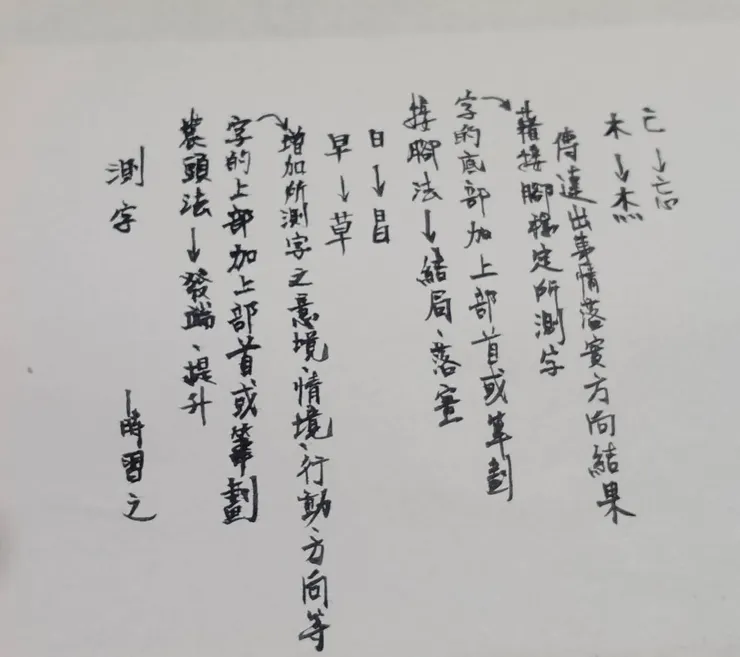 測字 —時習之
裝頭法→發端、提升
字的上部加上部首或筆劃→
增加所測字之意境、情境、行動、方向等
早→草
日→昌
接腳法→結局、落實
字的底部加上部首或筆劃→
藉接腳穩定所測字
傳達出事情落實方向結果
木→杰
亡→忘